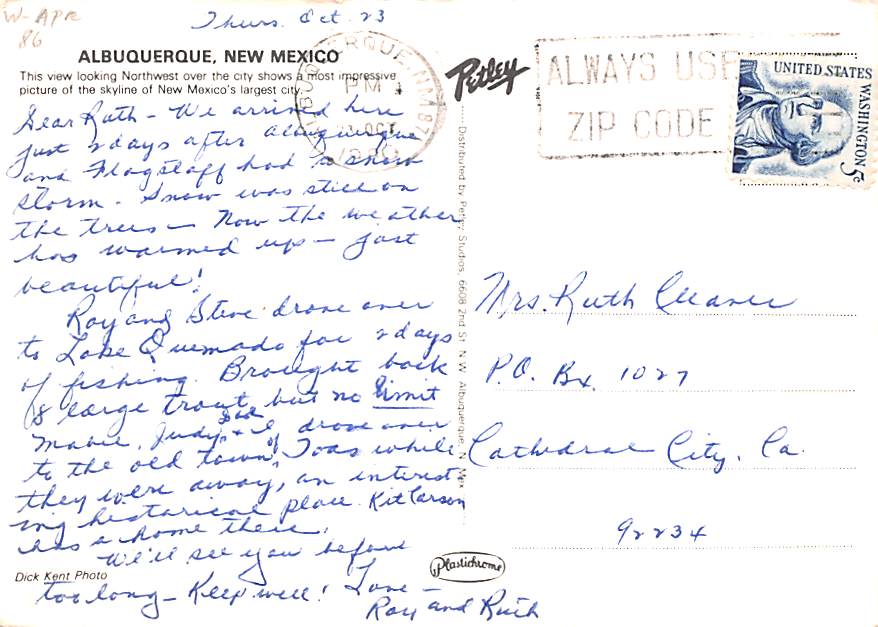 W-APR
86
Thurs. Oct. 23
ALBUQUERQUE, NEW MEXICO
This view looking Northwest over the city shows a most impressive
picture of the skyline of New Mexico's largest city.
Dear Ruth - We arrived here
just 2 days after Albuquerque
and Flagstaff had a snow
storm - Snow was still on
the trees - Now the weather
has warmed up - just
beautiful!
Ray and Steve drove over
to Lake Quemado for 2 days
of fishing. Brought back
18 large trout, but no limit
Marie, Judy, Sue + I drove over
to the old town of Toas while
they were away, an interest-
ing historical place. Kit Carson
has a home there.
We'll see you before
too long - Keep well! Love -
Ray and Ruth
Dick Kent Photo
Petley
Distributed by Petley Studios, 6608 2nd St. N.W. Albuquerque, N. Mex.
Plastichrome
PM
OCT
ALWAYS USE
ZIP CODE
UNITED STATES
WASHINGTON 5c
Mrs. Ruth Cleaver
P.O. Bx. 1027
Cathedral City, Ca.
92234